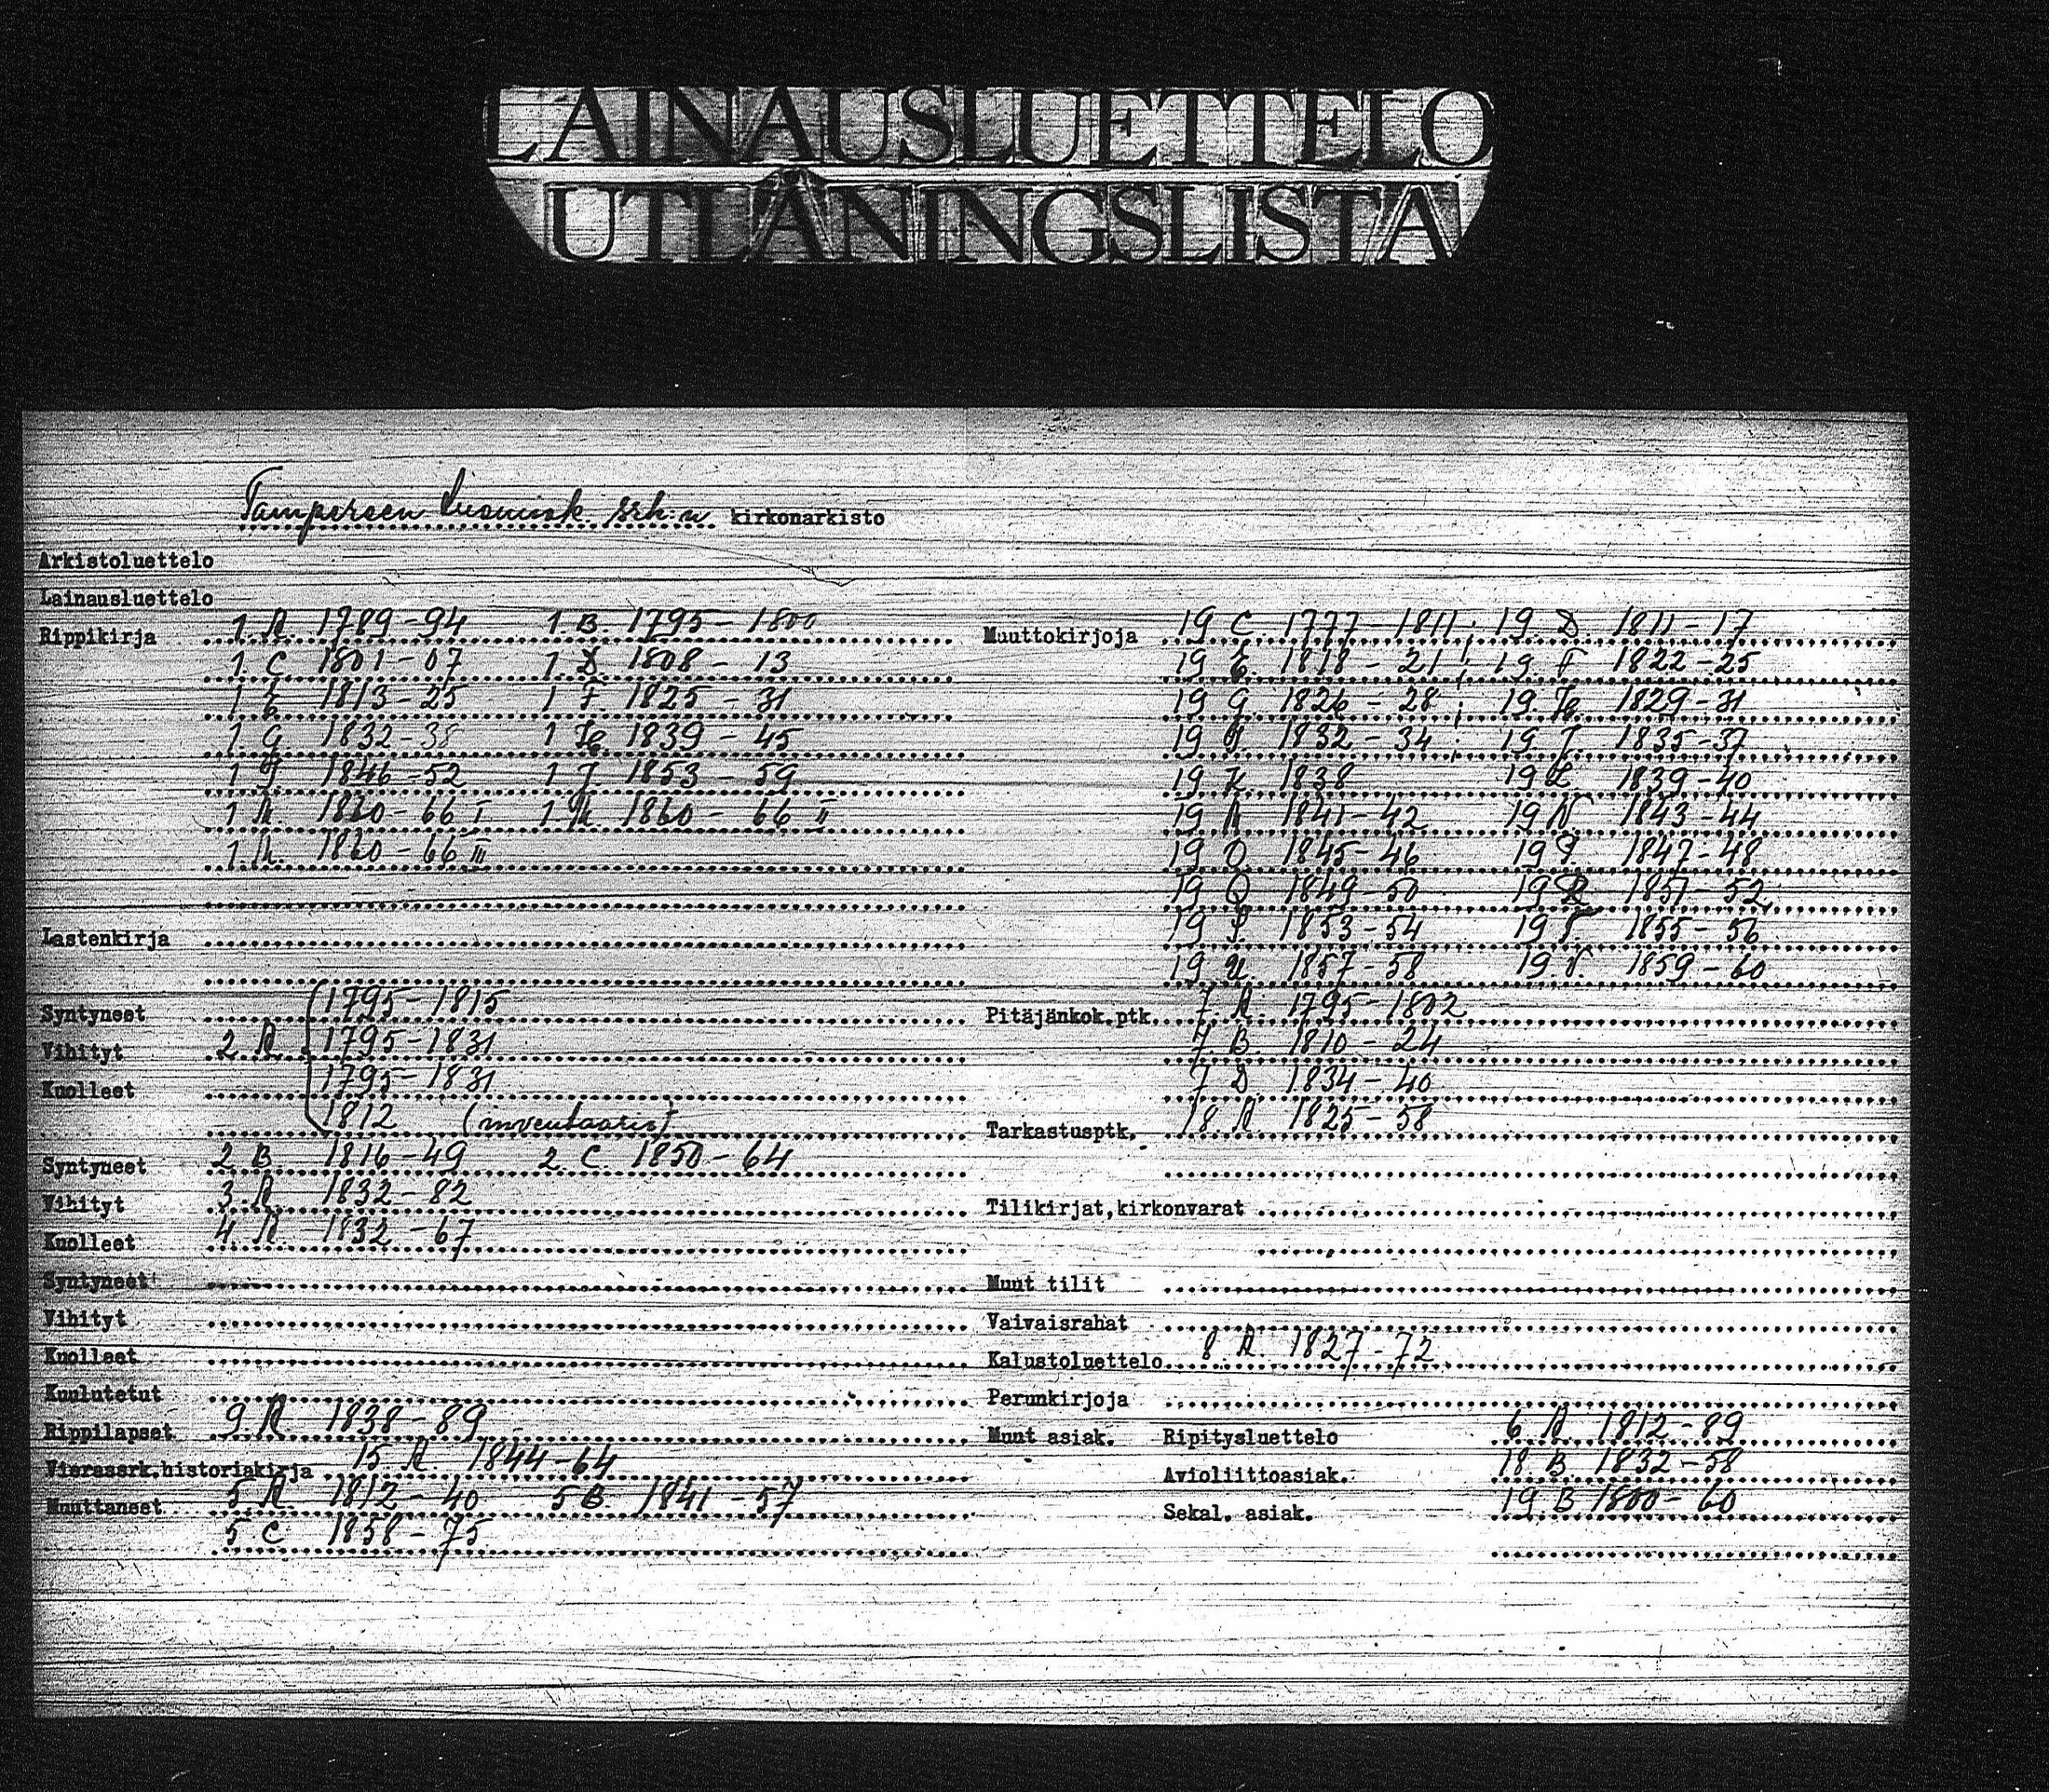 LAINAUSLUETTELO
UTLÅNINGSLISTA
Tampereen srk:n kirkonarkisto
Arkistoluettelo
Lainausluettelo
Rippikirja 1 A 1789-94 1 B 1795-1800
1 C 1801-07 1 D 1808-13
1 E 1813-25 1 F 1825-31
1 G 1832-38 1 H 1839-45
1 I 1846-52 1 J 1853-59
1 K 1860-66 I 1 K 1860-66 II
1 K 1860-66 III
Lastenkirja
Syntyneet 1795-1815
Vihityt 2 A 1795-1831
Kuolleet 1795-1831
1812 (inventaario)
Syntyneet 2 B 1816-49 2 C 1850-64
Vihityt 3 A 1832-82
Kuolleet 4 A 1832-67
Syntyneet
Vihityt
Kuolleet
Kuulutetut
Rippilapset 9 A 1838-89
Vierassrk.historiakirja 15 A 1844-64
Muuttaneet 5 A 1812-40 5 B 1841-57
5 C 1858-75
Muuttokirjoja 19 C 1777-1811; 19 D 1811-17
19 E 1818-21; 19 F 1822-25
19 G 1826-28; 19 H 1829-31
19 I 1832-34; 19 J 1835-37
19 K 1838 19 L 1839-40
19 M 1841-42 19 N 1843-44
19 O 1845-46 19 P 1847-48
19 Q 1849-50 19 R 1851-52
19 S 1853-54 19 T 1855-56
19 U 1857-58 19 V 1859-60
Pitäjänkok.ptk. 7 A 1795-1802
7 B 1810-24
7 D 1834-40
Tarkastusptk. 18 A 1825-58
Tilikirjat,kirkonvarat
Muut tilit
Vaivaisrahat
Kalustoluettelo 8 A 1827-72
Perunkirjoja
Muut asiak. Ripitysluettelo 6 A 1812-89
Avioliittoasiak. 18 B 1832-58
Sekal. asiak. 19 B 1800-60